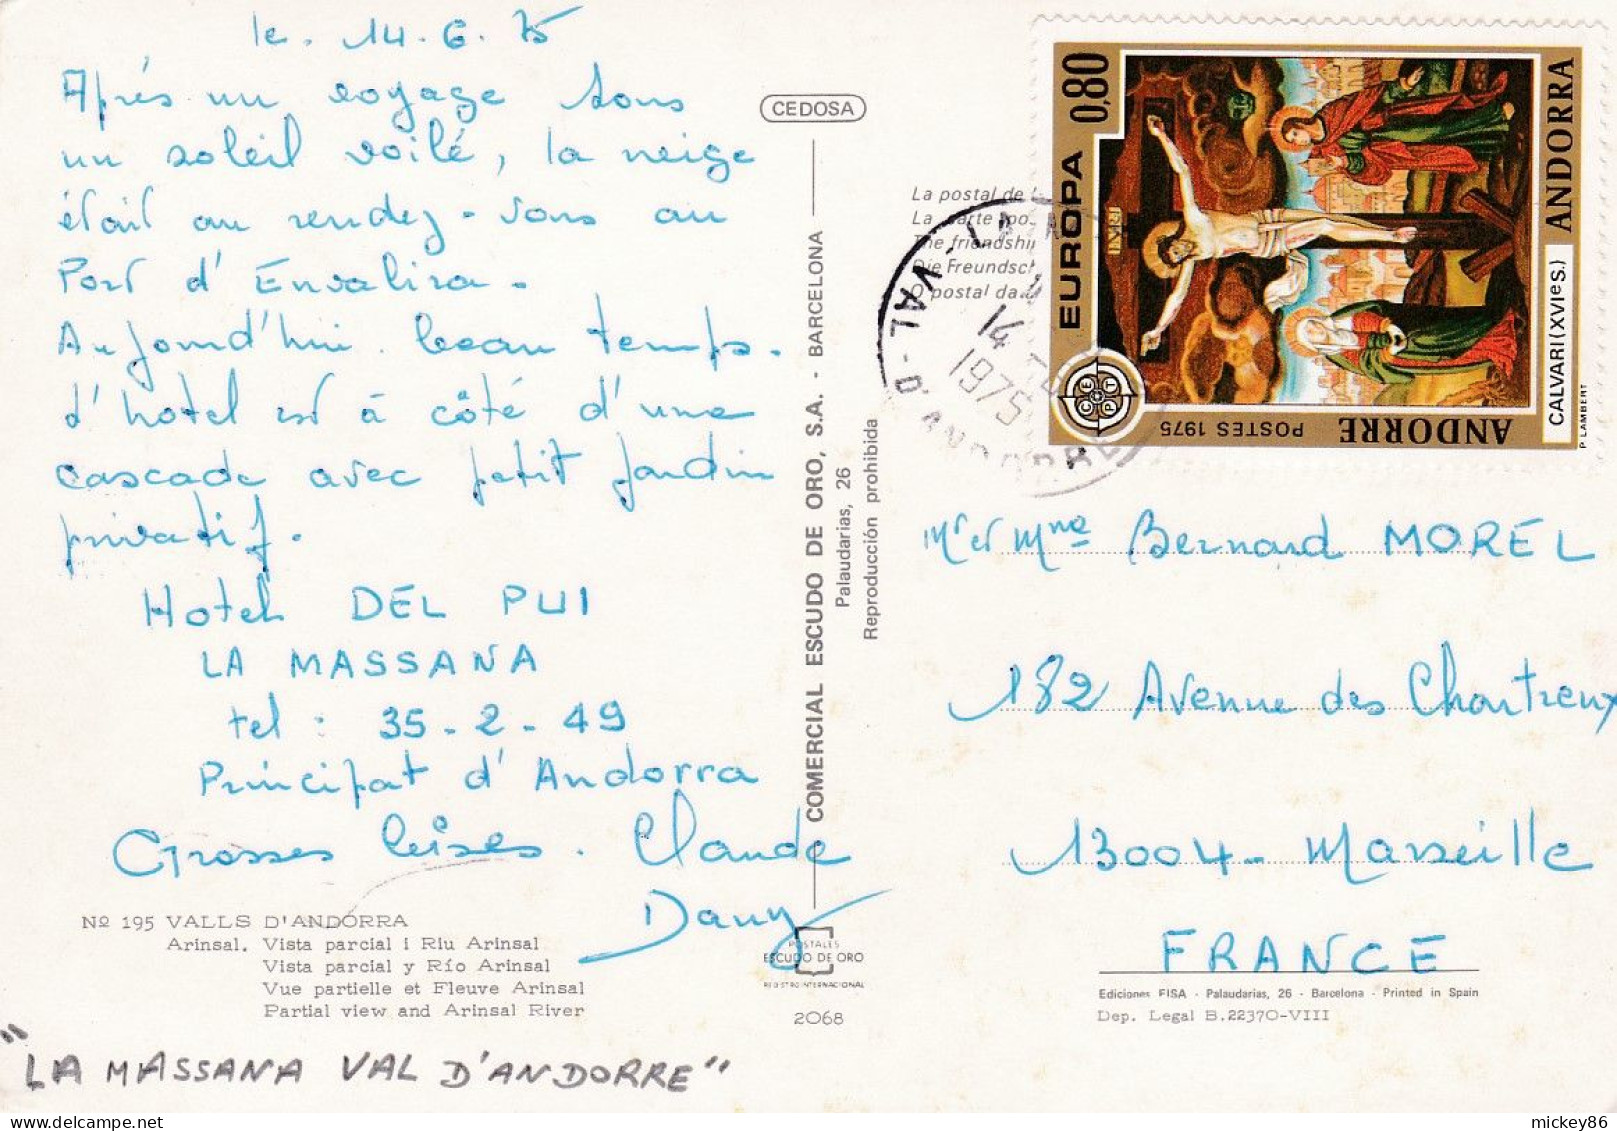 le. 14.6.75
Après un voyage sous
un soleil voilé, la neige
était au rendez-vous au
Port d'Envalira.
Aujourd'hui beau temps.
d'hotel est à côté d'une
cascade avec petit jardin
privatif.
Hotel DEL PUI
LA MASSANA
tel : 35-2-49
Principat d'Andorra
Grosses bises. Claude
Dany
Nº 195 VALLS D'ANDORRA
Arinsal. Vista parcial i Riu Arinsal
Vista parcial y Río Arinsal
Vue partielle et Fleuve Arinsal
Partial view and Arinsal River
"LA MASSANA VAL D'ANDORRE"
CEDOSA
COMERCIAL ESCUDO DE ORO, S.A. - BARCELONA
Palaudarias, 26
Reproducción prohibida
POSTALES
ESCUDO DE ORO
REGISTRO INTERNACIONAL
2068
La postal de
La carte po
The friendshi
Die Freundsc
O postal da
VAL-D'ANDORRE
14
1975
EUROPA 0,80
INRI
CEPT
POSTES 1975
ANDORRE
ANDORRA
CALVARI (XVIe S.)
P. LAMBERT
Mr et Mme Bernard MOREL
182 Avenue des Chartreux
13004 - Marseille
FRANCE
Ediciones FISA - Palaudarias, 26 - Barcelona - Printed in Spain
Dep. Legal B. 22370-VIII
mickey86